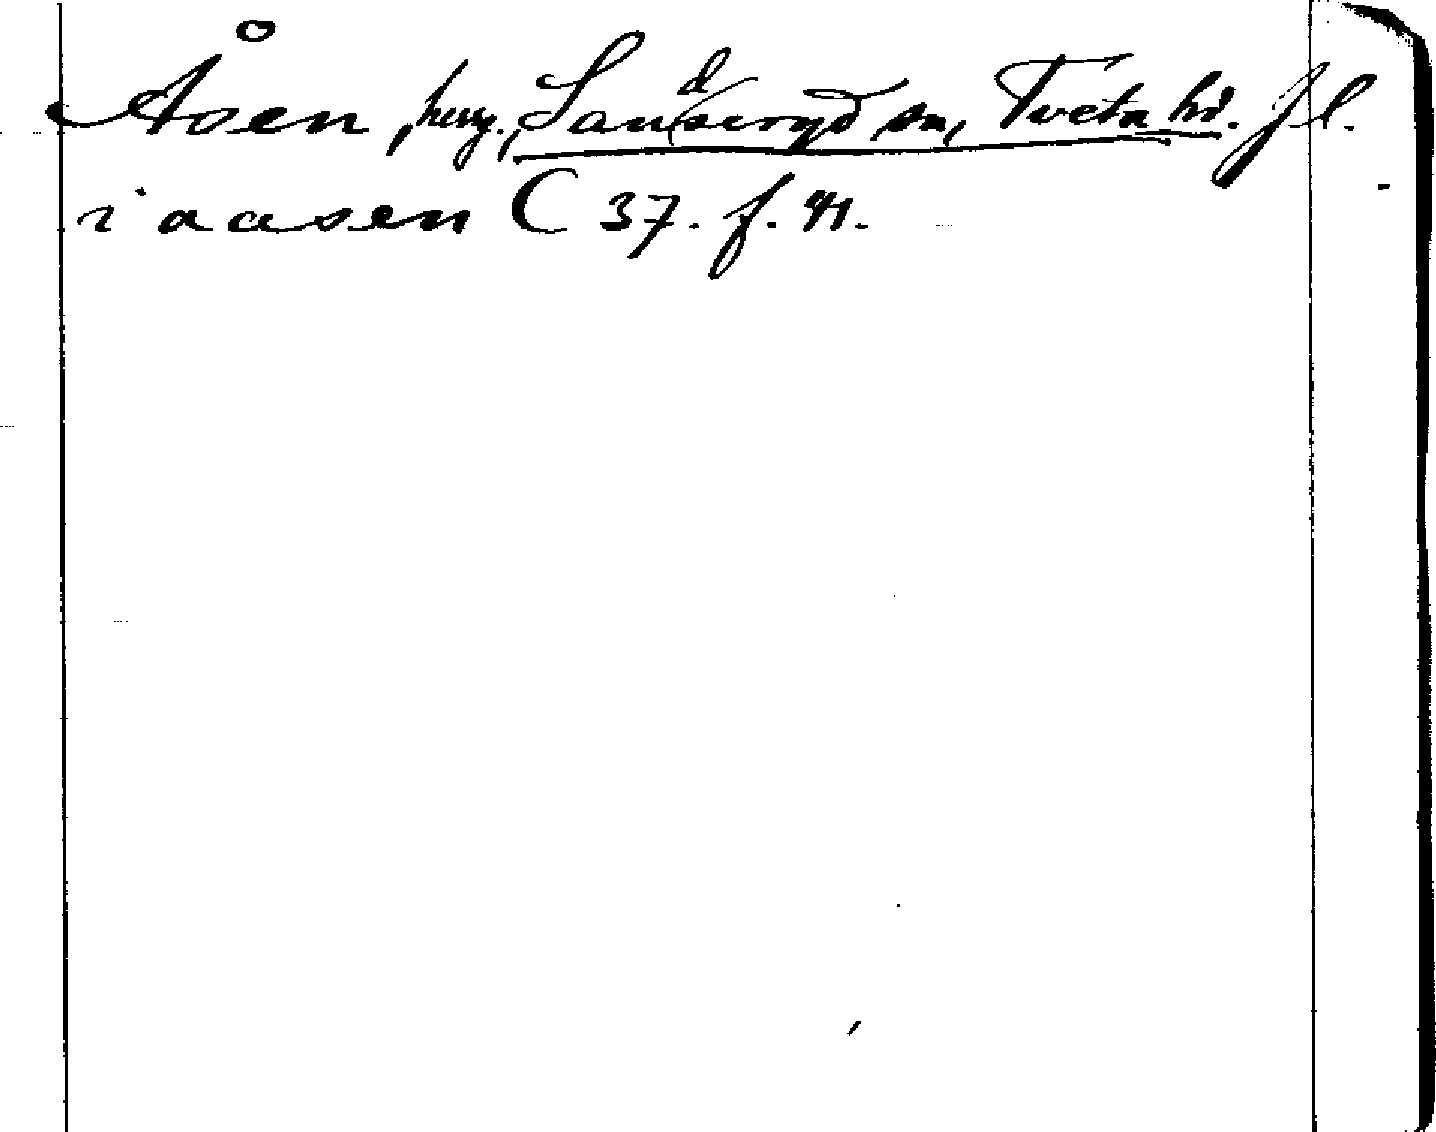 Åsen, hmg., Sandseryd sn, Tveta hd. Jl.
i aasen C 37. f. 41.